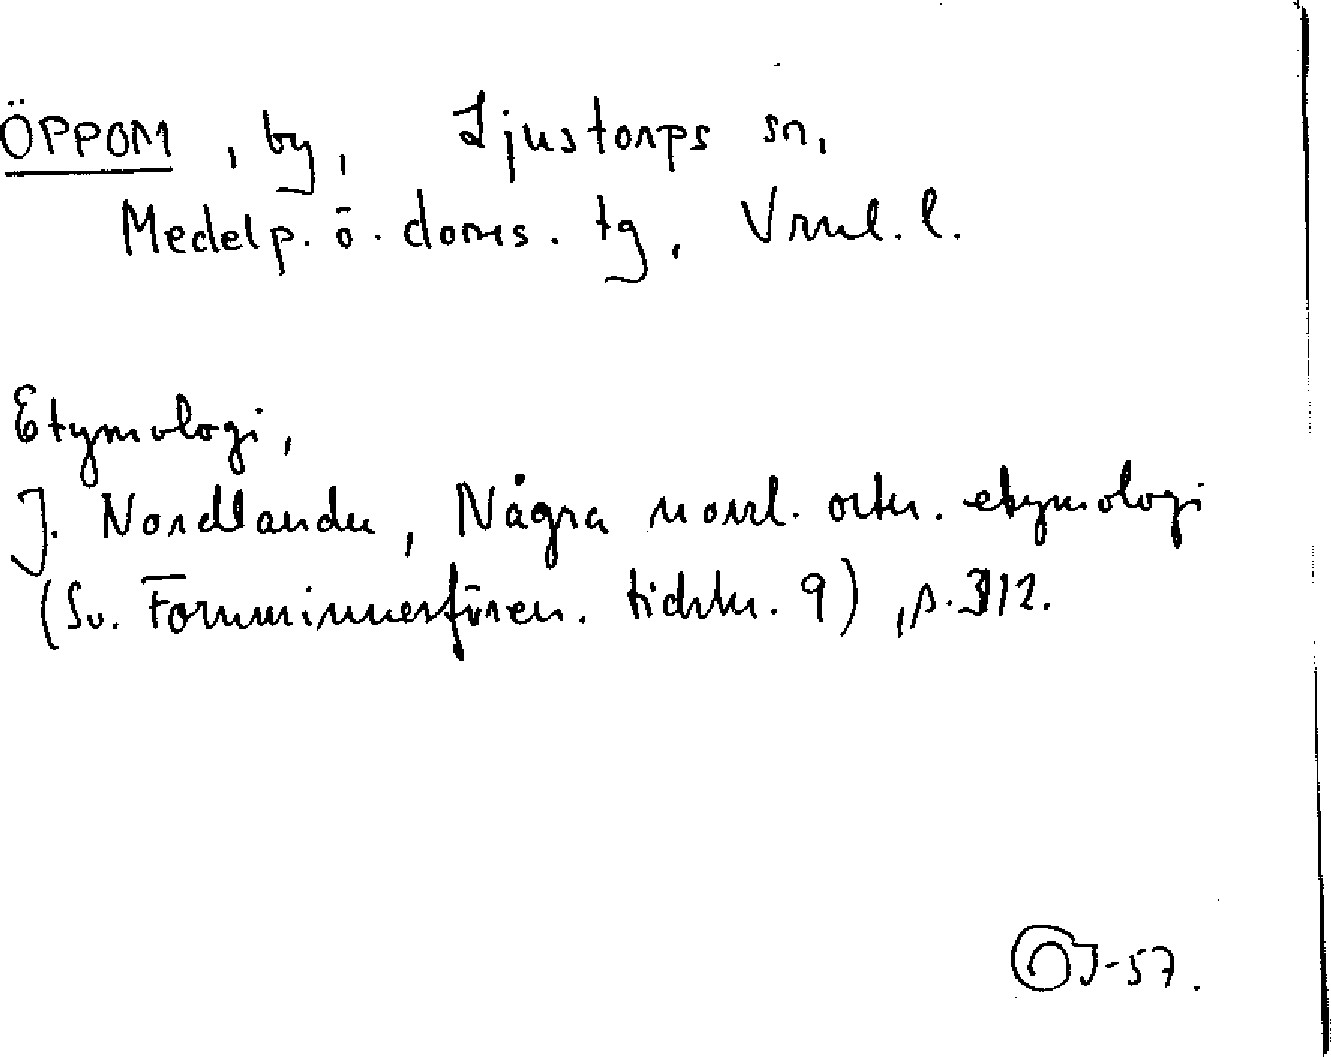 ÖPPOM, by, Ljustorps sn,
Medelp. ö. doms. tg, Vrnl. l.
Etymologi,
J. Nordlander, Några norrl. ortn. etymologi
(Sv. Fornminnesfören. tidskr. 9), p. 312.
57.